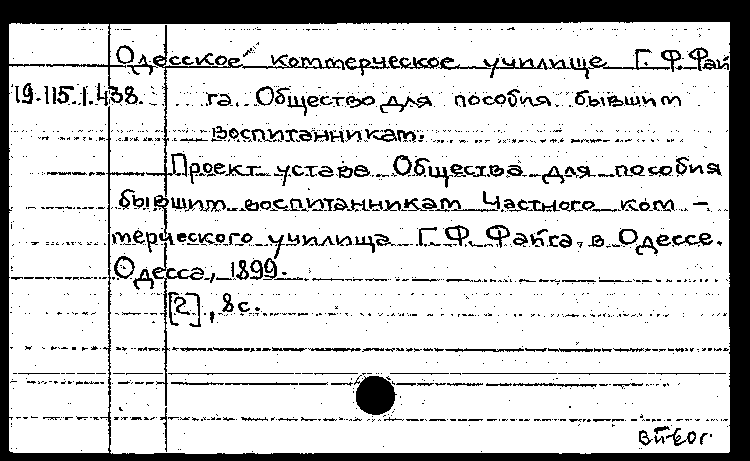 Одесское коммерческое училище Г. Ф. Фай
19.115.1.438. га. Общество для пособия бывшим
воспитанникам.
Проект устава Общества для пособия
бывшим воспитанникам Частного ком-
мерческого училища Г. Ф. Файга, в Одессе.
Одесса, 1899.
[2], 8 с.